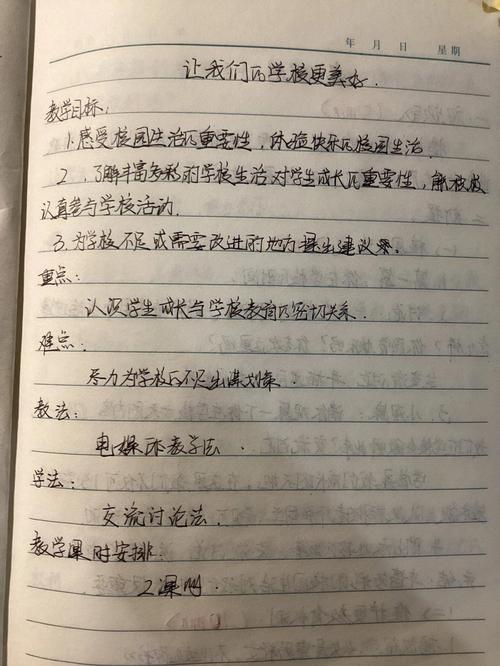 年 月 日 星期
让我们的学校更美好.
教学目标:
1.感受校园生活的重要性,体验快乐的校园生活.
2.了解丰富多彩的学校生活对学生成长的重要性,
认真参与学校活动.
3.为学校不足或需要改进的地方提出建议来.
重点:
认识学生成长与学校教育的密切关系.
难点:
尽力为学校的不足出谋划策.
教法:
电媒体教学法.
学法:
交流讨论法.
教学课时安排:
2课时